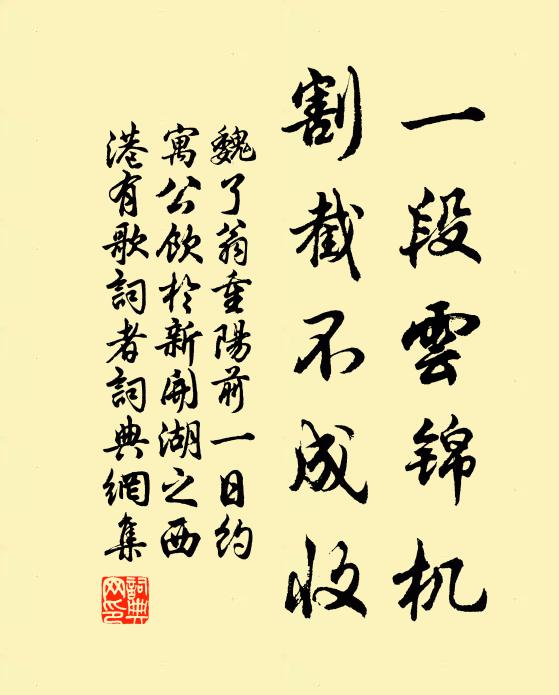 一段雲锦机
割截不成收
魏了翁重陽前一日约
寓公飲於新開湖之西
港有歌詞者詞典網集
詞典网印